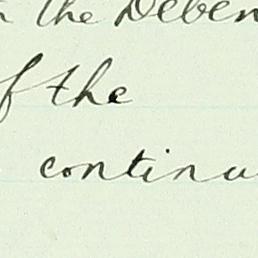 the Deben
of the
continu